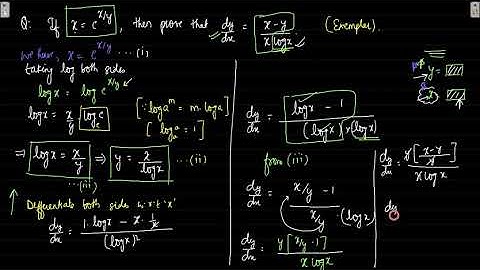 Q: If x = e^{x/y}, then prove that dy/dx = (x-y)/(x logx) (Exemplar).
we have, x = e^{x/y} ....(i)
taking log both sides
logx = log e^{x/y}
logx = x/y log_e e
[∵ log a^m = m·log a]
[log_a a = 1]
⇒ logx = x/y ⇒ y = x/logx ...(ii)
...(iii)
Differentiate both sides w.r.t 'x'
dy/dx = (1·logx - x·1/x)/(logx)²
dy/dx = (logx - 1)/((logx)×(logx))
from (iii)
dy/dx = (x/y - 1)/(x/y ·(logx))
dy/dx = y[x/y - 1]/(x logx)
y =
dy/dx = y[(x-y)/y]/(x logx)
dy